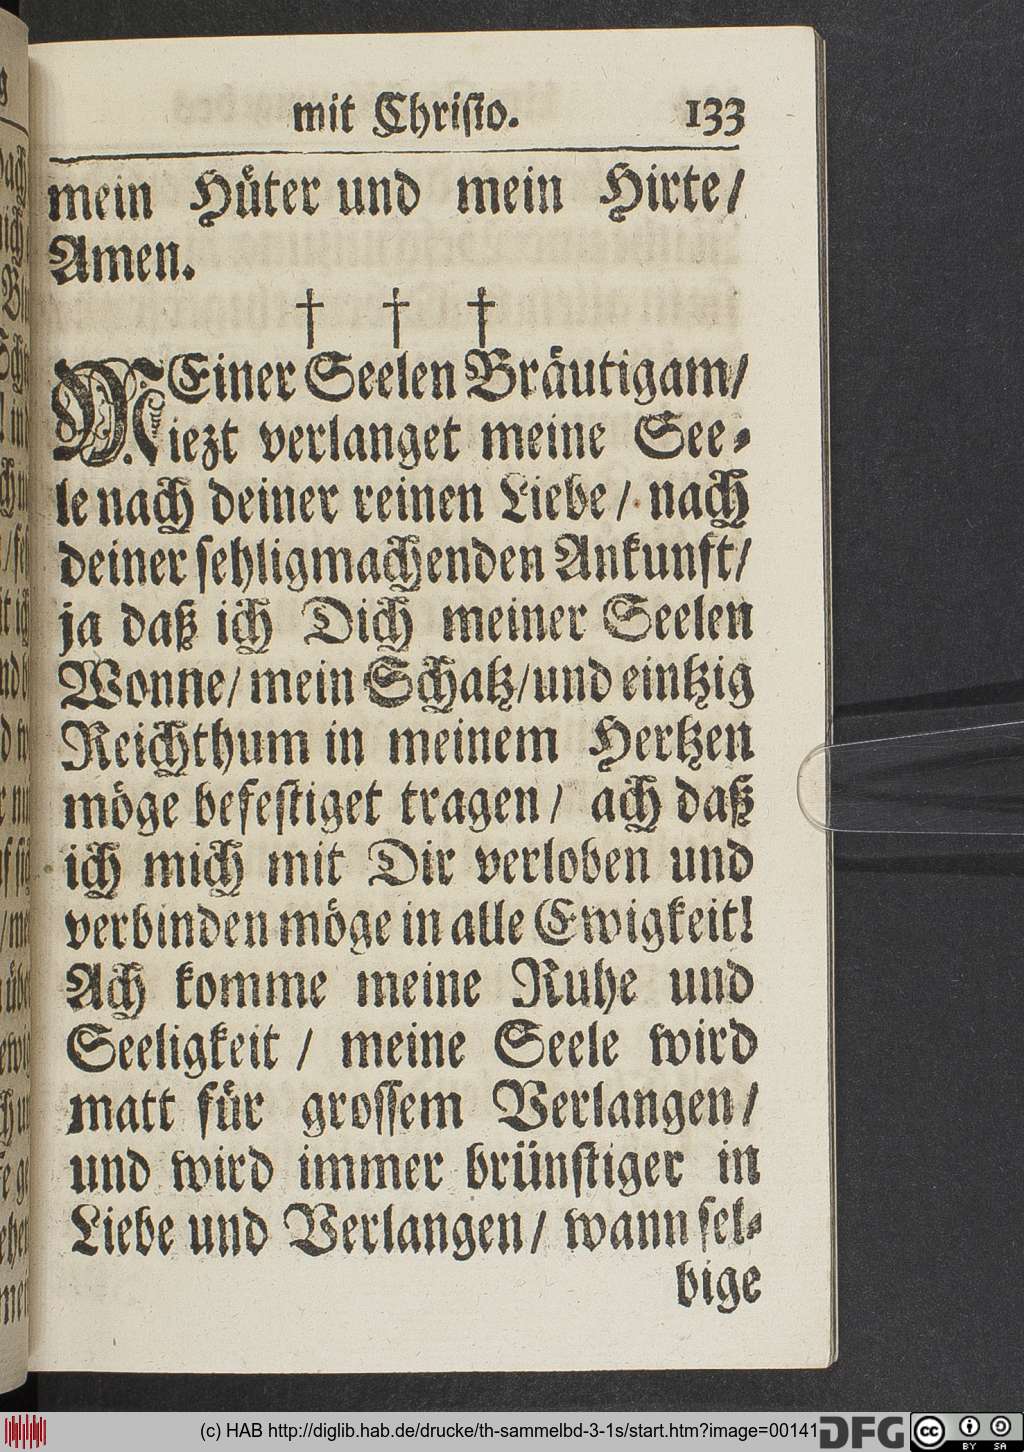 mit Christo. 133
mein Hüter und mein Hirte/
Amen.
† † †
MEiner Seelen Bräutigam/
iezt verlanget meine See-
le nach deiner reinen Liebe / nach
deiner sehligmachenden Ankunft/
ja daß ich Dich meiner Seelen
Wonne/ mein Schatz/und eintzig
Reichthum in meinem Hertzen
möge befestiget tragen / ach daß
ich mich mit Dir verloben und
verbinden möge in alle Ewigkeit!
Ach komme meine Ruhe und
Seeligkeit / meine Seele wird
matt für grossem Verlangen/
und wird immer brünstiger in
Liebe und Verlangen/ wann sel-
bige
(c) HAB http://diglib.hab.de/drucke/th-sammelbd-3-1s/start.htm?image=00141
DFG
cc BY SA